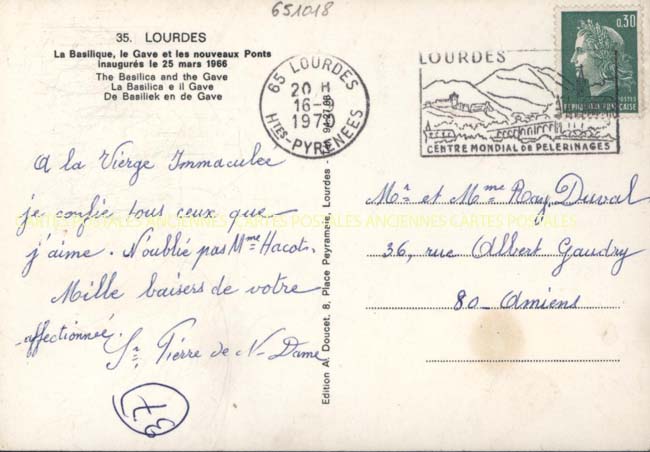 651018
35. LOURDES
La Basilique, le Gave et les nouveaux Ponts
inaugurés le 25 mars 1966
The Basilica and the Gave
La Basilica e il Gave
De Basiliek en de Gave
65 LOURDES
20 H
16-
197
Htes-PYRENEES
LOURDES
CENTRE MONDIAL DE PELERINAGES
0,30
POSTES
REPUBLIQUE FRANÇAISE
A la Vierge Immaculée
je confie tous ceux que
j'aime. N'oublié pas Mme Hacot.
Mille baisers de votre
affectionnée.
Sr Pierre de N-Dame
37
Edition A. Doucet, 8, Place Peyramale, Lourdes -
Mr et Mme Ray Duval
36, rue Albert Gaudry
80 - Amiens
CARTES POSTALES ANCIENNES CARTES POSTALES ANCIENNES CARTES POSTALES